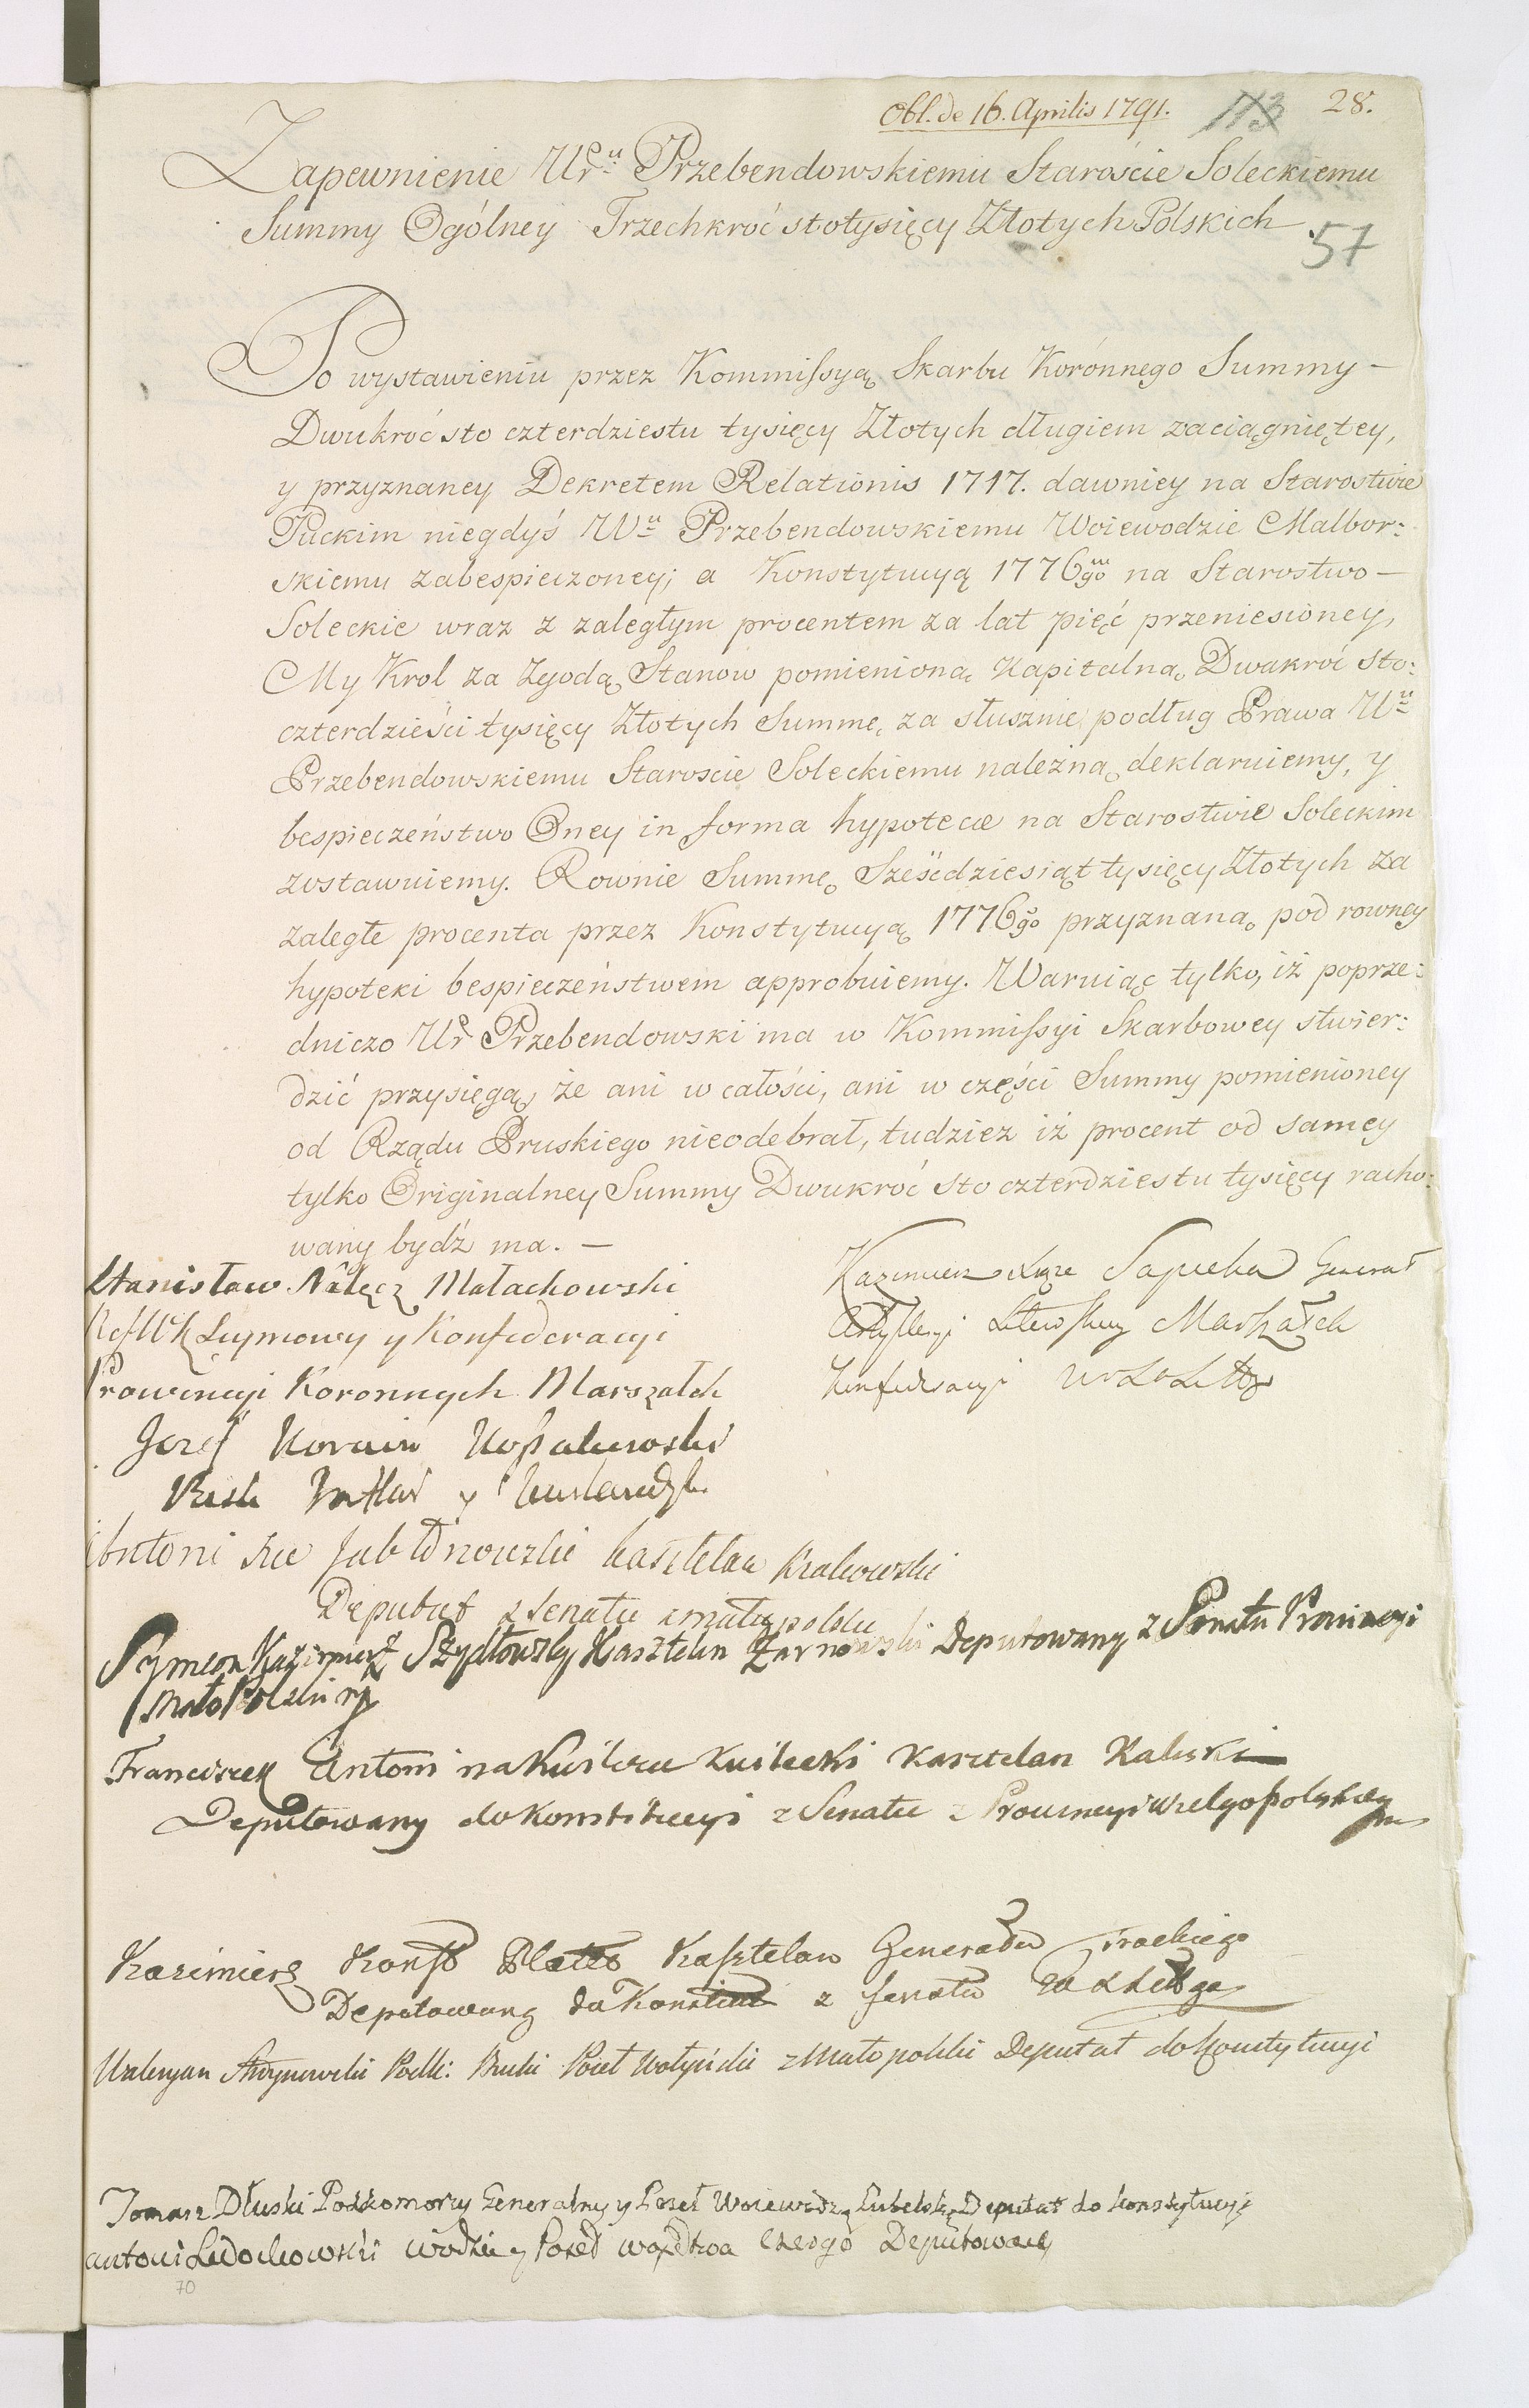 Obl. de 16. Aprilis 1791. 113 28.
Zapewnienie Ur. Przebendowskiemu Staroście Soleckiemu
Summy Ogólney Trzechkroć stotysięcy Złotych Polskich
57
Po wystawieniu przez Kommissyą Skarbu Koronnego Summy —
Dwukroć sto czterdziestu tysięcy Złotych długiem zaciągniętey,
y przyznaney Dekretem Relationis 1717. dawniey na Starostwie
Puckim niegdyś Wu Przebendowskiemu Woiewodzie Malbor:
skiemu zabespieczoney; a Konstytucyą 1776go na Starostwo —
Soleckie wraz z zaległym procentem za lat pięć przeniesioney,
My Krol za Zgodą Stanow pomienioną Kapitalną Dwakroć sto:
czterdzieści tysięcy Złotych Summę, za słusznie podług Prawa Wu
Przebendowskiemu Staroscie Soleckiemu należną deklaruiemy, y
bespieczeństwo Oney in forma hypotecæ na Starostwie Soleckim
zostawuiemy. Rownie Summę Sześćdziesiąt tysięcy Złotych za
zaległe procenta przez Konstytucyą 1776go przyznaną pod rowney
hypoteki bespieczeństwem approbuiemy. Waruiąc tylko, iż poprze:
dniczo Ur. Przebendowski ma w Kommissyi Skarbowey stwier:
dzić przysięgą, że ani w całości, ani w części Summy pomienioney
od Rządu Pruskiego nieodebrał, tudziez iż procent od samey
tylko Originalney Summy Dwukroć sto czterdziestu tysięcy racho:
wany bydź ma. —
Stanisław Nałęcz Małachowski
Ref W K Seymowy y Konfederacyi
Prowincyi Koronnych Marszałek
Kazimierz Xiąże Sapieha Generał
Artylleryi Litewskiey Marszałek
Konfederacyi W X Litt
Józef Korwin Kossakowski
Bisk Inflan y Kurlandzki
Antoni Xże Jabłonowski kasztelan Krakowski
Deputat z Senatu z małeypolski
Symeon Kazimierz Szydłowsky Kasztelan Żarnowski Deputowany z Senatu Prowincyi
MałoPolskiey
Franciszek Antoni na Kwilczu Kwilecki Kasztelan Kaliski
Deputowany do Konstitucyi z Senatu z Prowincyi Wielgopolskiey
Kazimierz Konst Plater Kasztelan Generału Trockiego
Deputowany do Konstitu z senatu W X Littgo
Waleryan Stroynowski Podk: Buski Poseł Wołyński z Małopolski Deputat do konstytucyi
Tomasz Dłuski Podkomorzy Generalny y Poseł Woiewodz Lubelski Deputat do konstytucyi
antoni Ledochowski Poseł Deputowany
70